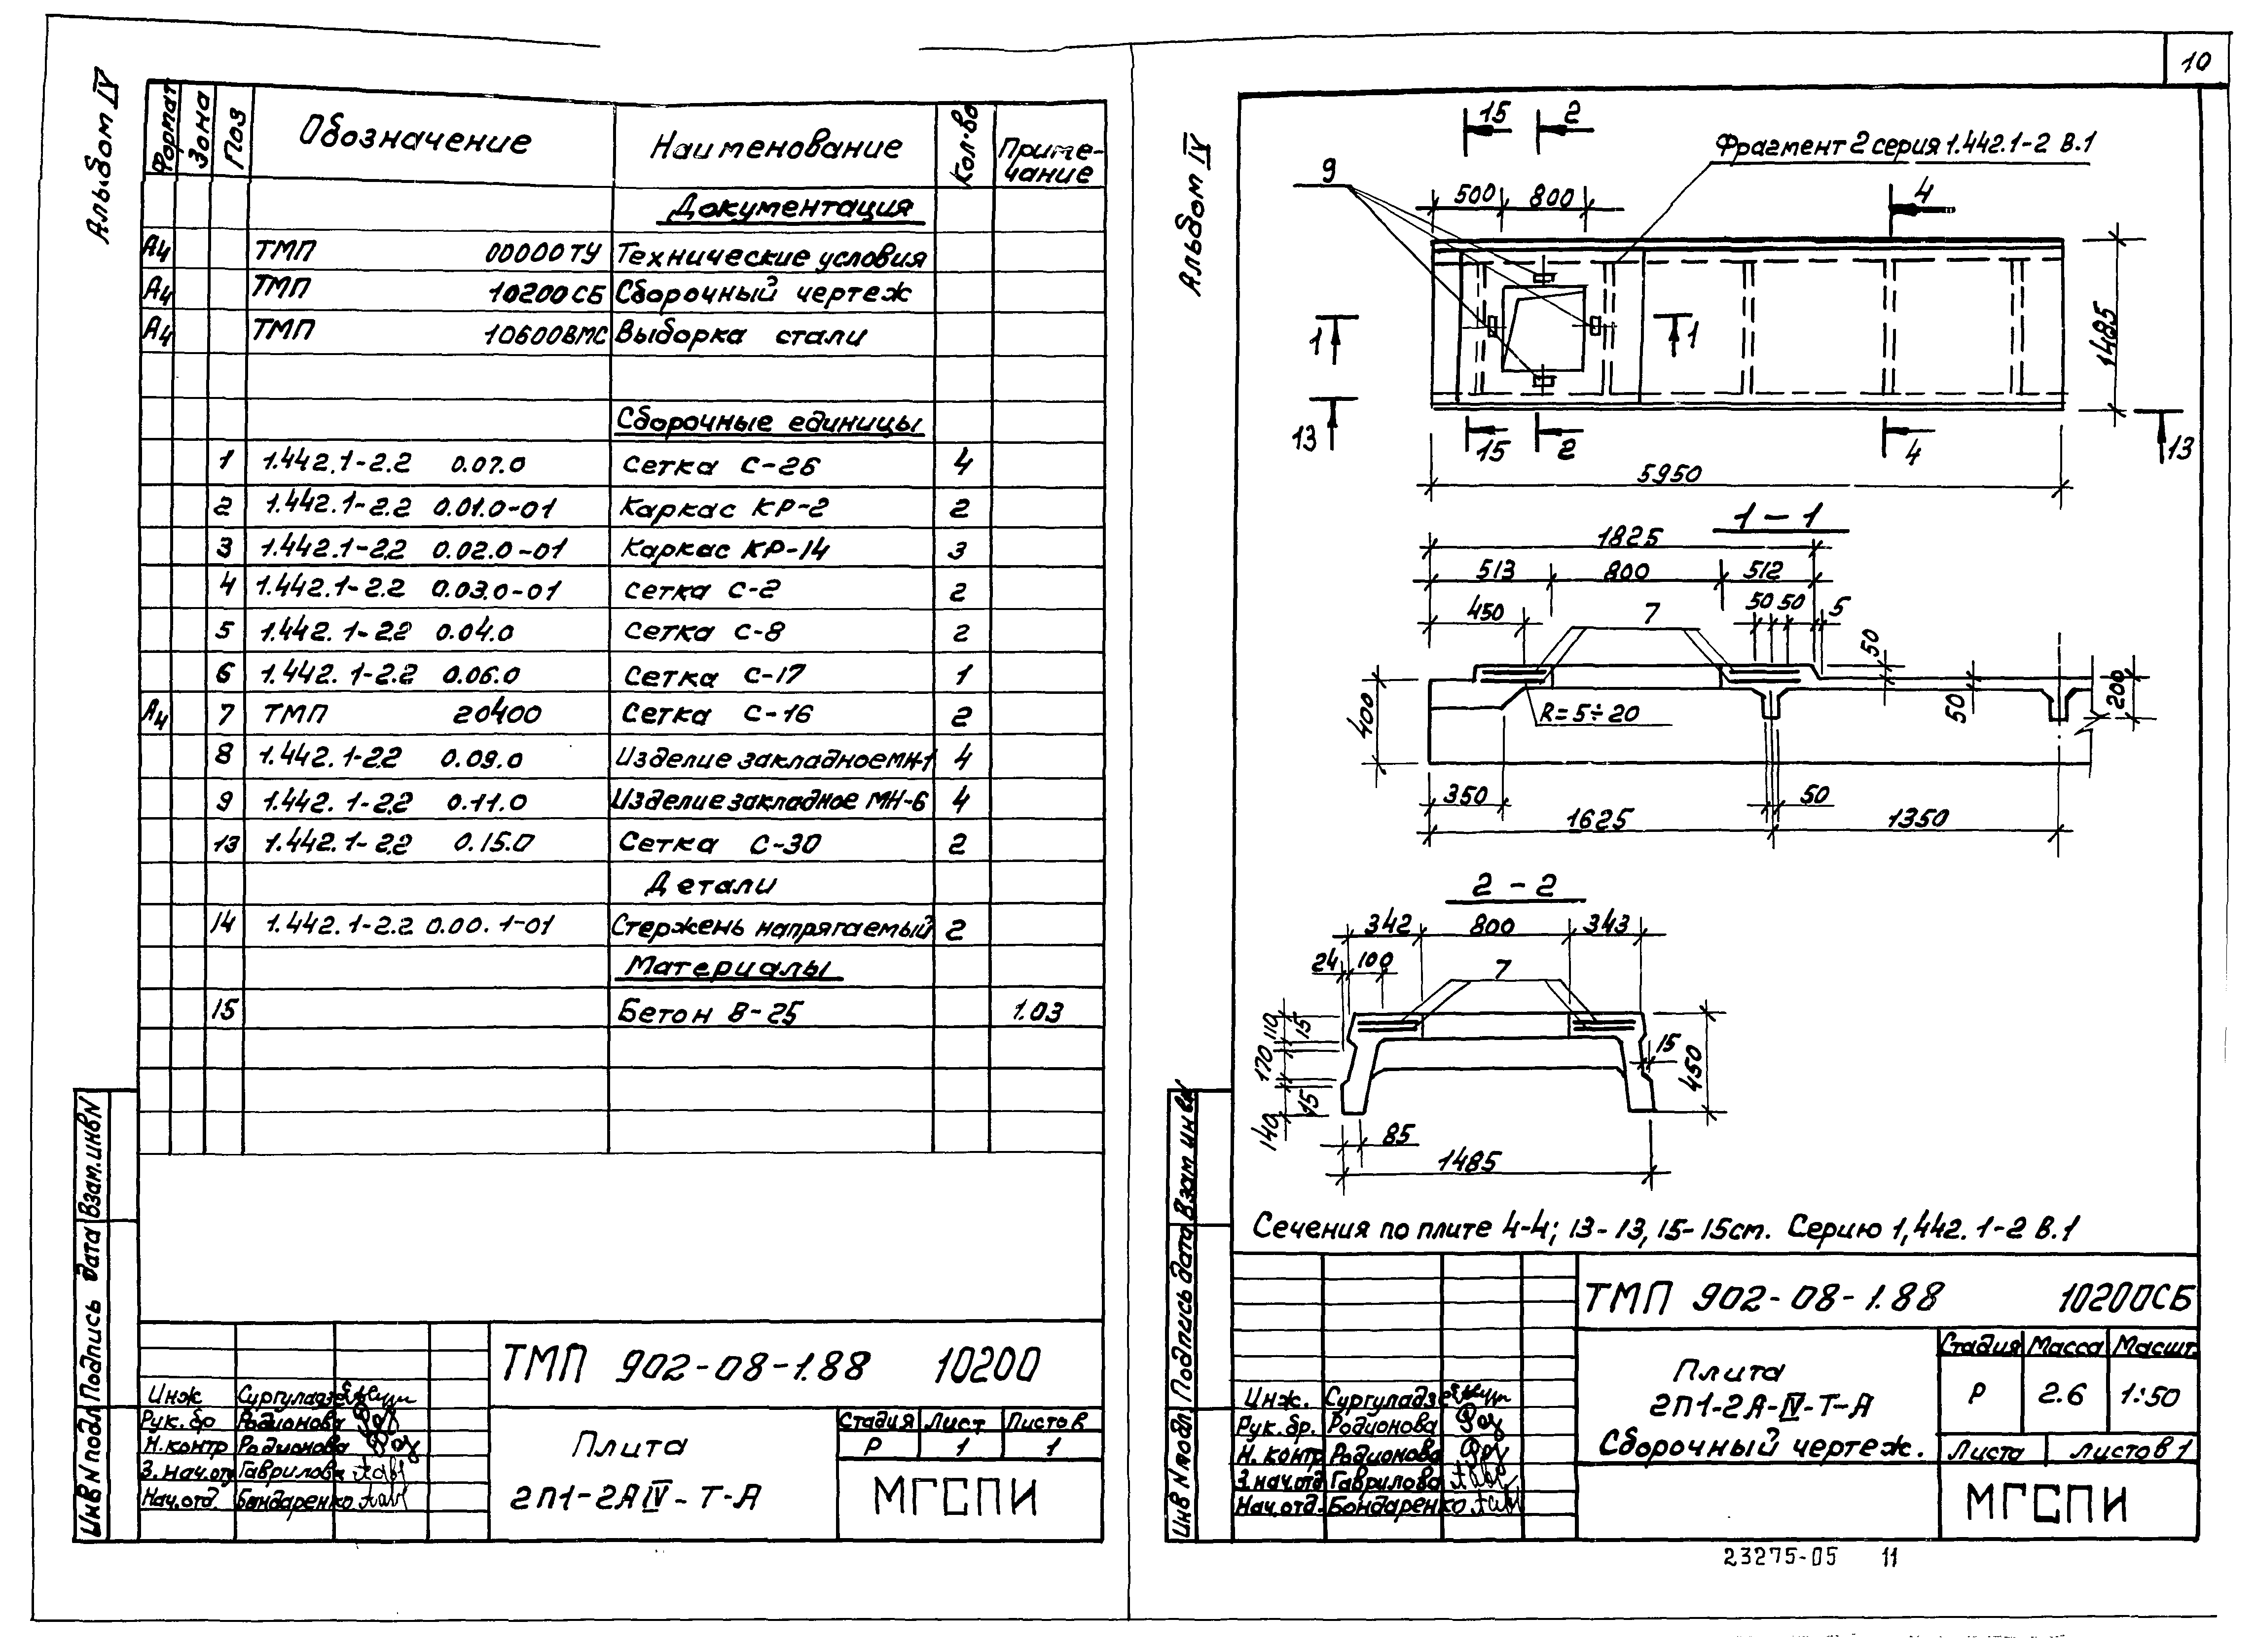 Альбом IV
Формат Зона Поз Обозначение Наименование Кол-во Приме-
чание
Документация
А4 ТМП 00000ТУ Технические условия
А4 ТМП 10200СБ Сборочный чертеж
А4 ТМП 10600ВМС Выборка стали
Сборочные единицы
1 1.442.1-2.2 0.07.0 Сетка С-26 4
2 1.442.1-2.2 0.01.0-01 Каркас КР-2 2
3 1.442.1-2.2 0.02.0-01 Каркас КР-14 3
4 1.442.1-2.2 0.03.0-01 Сетка С-2 2
5 1.442.1-2.2 0.04.0 Сетка С-8 2
6 1.442.1-2.2 0.06.0 Сетка С-17 1
А4 7 ТМП 20400 Сетка С-16 2
8 1.442.1-2.2 0.09.0 Изделие закладное МН-1 4
9 1.442.1-2.2 0.11.0 Изделие закладное МН-6 4
13 1.442.1-2.2 0.15.0 Сетка С-30 2
Детали
14 1.442.1-2.2 0.00.1-01 Стержень напрягаемый 2
Материалы
15 Бетон В-25 1.03
Инв N подл Подпись дата Взам.инвN
ТМП 902-08-1.88 10200
Инж Сургуладзе
Рук.бр Родионова
Н.контр Родионова
З.нач.отд Гаврилова
Нач.отд. Бондаренко
Плита
2П1-2АIV-Т-А
Стадия Лист Листов
Р 1 1
МГСПИ
10
Альбом IV
15 2
Фрагмент 2 серия 1.442.1-2 В.1
9
500 800
4
1 1
1485
13 15 2 4 13
5950
1-1
1825
513 800 512
450 7 50 50 5
50
400 R=5÷20 50 200
350 50
1625 1350
2-2
342 800 343
24 100 7
110 15
170 15 450
15
140 85
1485
Сечения по плите 4-4; 13-13, 15-15 ст. Серию 1,442.1-2 В.1
Инв N подл. Подпись дата Взам инвN
ТМП 902-08-1.88 10200СБ
Инж. Сургуладзе
Рук.бр. Родионова
Н.контр Родионова
З.нач.отд Гаврилова
Нач.отд. Бондаренко
Плита
2П1-2А-IV-Т-А
Сборочный чертеж.
Стадия Масса Масшт.
Р 2.6 1:50
Листа Листов 1
МГСПИ
23275-05 11